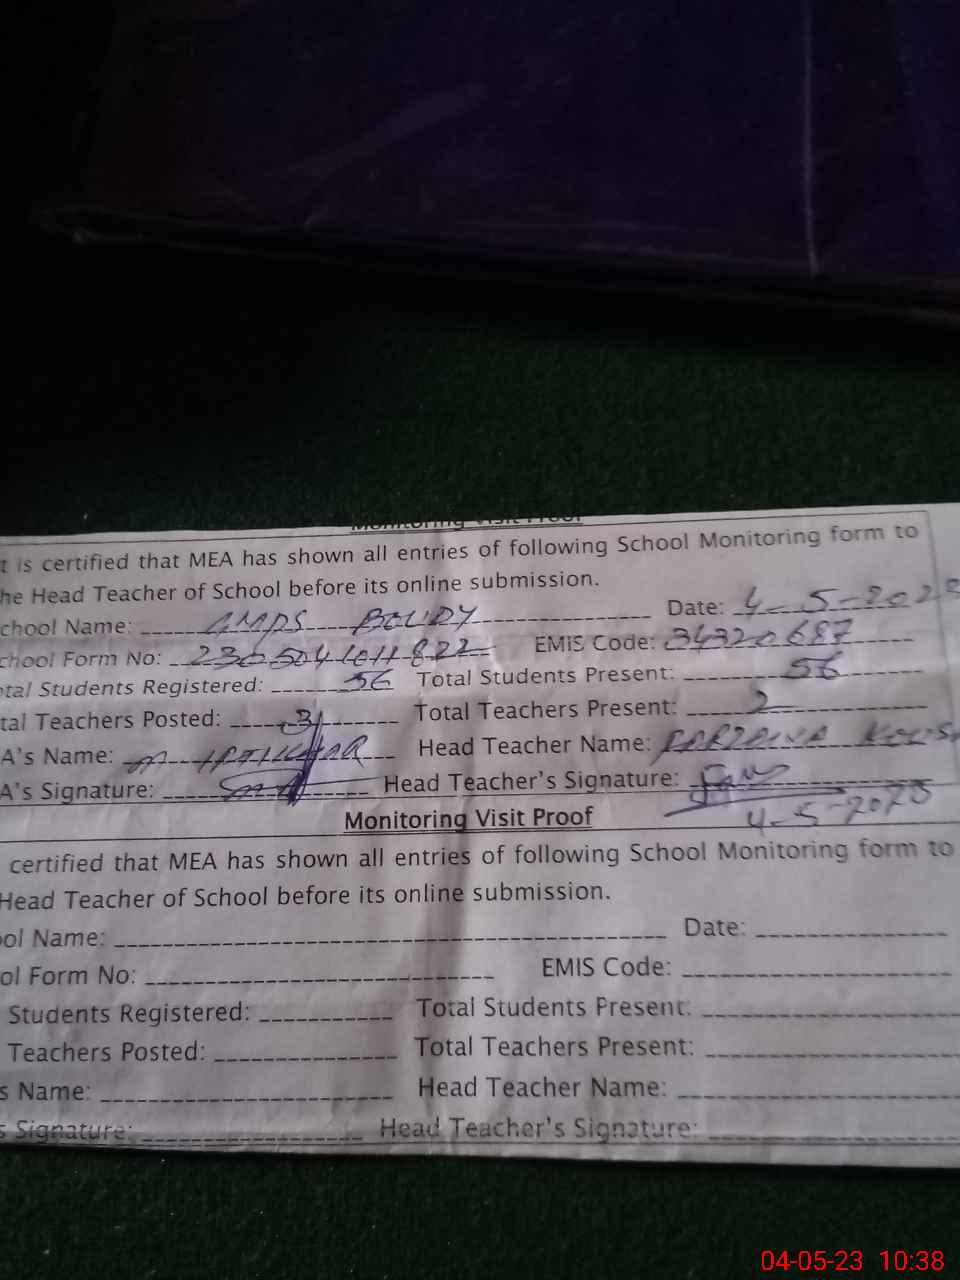 Monitoring Visit Proof
t is certified that MEA has shown all entries of following School Monitoring form to
he Head Teacher of School before its online submission.
chool Name: GMPS BOUDY Date: 4-5-2023
chool Form No: EMIS Code: 34320687
tal Students Registered: 56 Total Students Present: 56
tal Teachers Posted: 3 Total Teachers Present: 2
A's Name: M IFTIKHAR Head Teacher Name:
A's Signature: Head Teacher's Signature:
4-5-2023
Monitoring Visit Proof
certified that MEA has shown all entries of following School Monitoring form to
Head Teacher of School before its online submission.
ool Name: Date:
ol Form No: EMIS Code:
Students Registered: Total Students Present:
Teachers Posted: Total Teachers Present:
s Name: Head Teacher Name:
s Signature: Head Teacher's Signature:
04-05-23 10:38